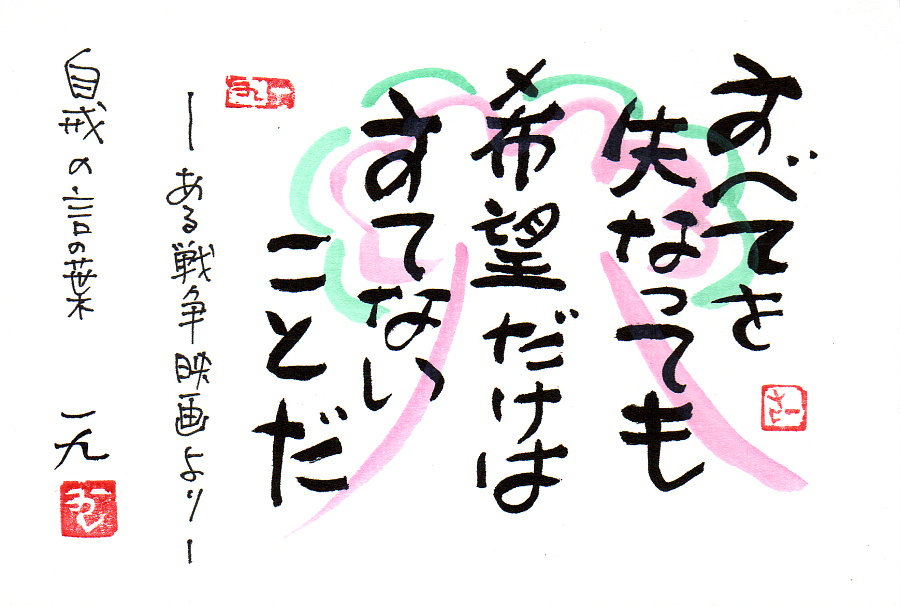 すべてを
失なっても
希望だけは
すてない
ことだ
ーある戦争映画よりー
自戒の言の葉
一九